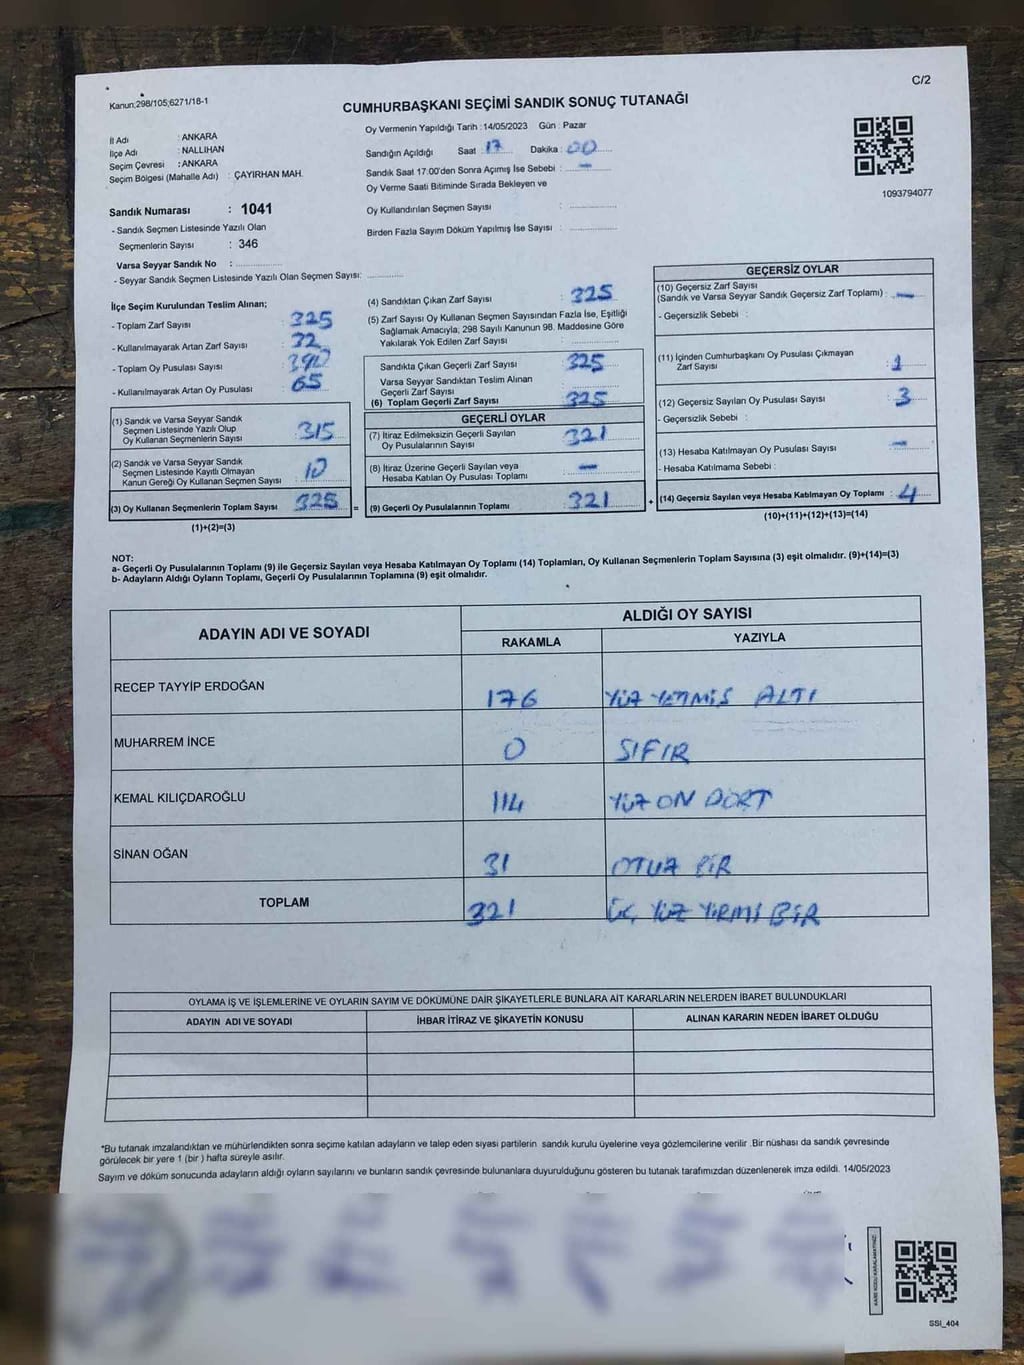 C/2
Kanun;298/105;6271/18-1
CUMHURBAŞKANI SEÇİMİ SANDIK SONUÇ TUTANAĞI
İl Adı : ANKARA
İlçe Adı : NALLIHAN
Seçim Çevresi : ANKARA
Seçim Bölgesi (Mahalle Adı) : ÇAYIRHAN MAH.
Oy Vermenin Yapıldığı Tarih : 14/05/2023 Gün : Pazar
Sandığın Açıldığı Saat 17 Dakika : 00
Sandık Saat 17:00'den Sonra Açımış İse Sebebi : —
Oy Verme Saati Bitiminde Sırada Bekleyen ve
Oy Kullandırılan Seçmen Sayısı :
Birden Fazla Sayım Döküm Yapılmış İse Sayısı :
1093794077
Sandık Numarası : 1041
- Sandık Seçmen Listesinde Yazılı Olan
Seçmenlerin Sayısı : 346
Varsa Seyyar Sandık No :
- Seyyar Sandık Seçmen Listesinde Yazılı Olan Seçmen Sayısı:
İlçe Seçim Kurulundan Teslim Alınan;
- Toplam Zarf Sayısı : 325
- Kullanılmayarak Artan Zarf Sayısı : 32
- Toplam Oy Pusulası Sayısı :
- Kullanılmayarak Artan Oy Pusulası : 65
(1) Sandık ve Varsa Seyyar Sandık
Seçmen Listesinde Yazılı Olup
Oy Kullanan Seçmenlerin Sayısı : 315
(2) Sandık ve Varsa Seyyar Sandık
Seçmen Listesinde Kayıtlı Olmayan
Kanun Gereği Oy Kullanan Seçmen Sayısı : 10
(3) Oy Kullanan Seçmenlerin Toplam Sayısı : 325 =
(1)+(2)=(3)
(4) Sandıktan Çıkan Zarf Sayısı : 325
(5) Zarf Sayısı Oy Kullanan Seçmen Sayısından Fazla İse, Eşitliği
Sağlamak Amacıyla; 298 Sayılı Kanunun 98. Maddesine Göre
Yakılarak Yok Edilen Zarf Sayısı :
Sandıkta Çıkan Geçerli Zarf Sayısı : 325
Varsa Seyyar Sandıktan Teslim Alınan
Geçerli Zarf Sayısı :
(6) Toplam Geçerli Zarf Sayısı : 325
GEÇERLİ OYLAR
(7) İtiraz Edilmeksizin Geçerli Sayılan
Oy Pusulalarının Sayısı : 321
(8) İtiraz Üzerine Geçerli Sayılan veya
Hesaba Katılan Oy Pusulası Toplamı : —
(9) Geçerli Oy Pusulalarının Toplamı : 321 +
GEÇERSİZ OYLAR
(10) Geçersiz Zarf Sayısı
(Sandık ve Varsa Seyyar Sandık Geçersiz Zarf Toplamı) : —
- Geçersizlik Sebebi :
(11) İçinden Cumhurbaşkanı Oy Pusulası Çıkmayan
Zarf Sayısı : 1
(12) Geçersiz Sayılan Oy Pusulası Sayısı : 3
- Geçersizlik Sebebi :
(13) Hesaba Katılmayan Oy Pusulası Sayısı : —
- Hesaba Katılmama Sebebi :
(14) Geçersiz Sayılan veya Hesaba Katılmayan Oy Toplamı : 4
(10)+(11)+(12)+(13)=(14)
NOT:
a- Geçerli Oy Pusulalarının Toplamı (9) ile Geçersiz Sayılan veya Hesaba Katılmayan Oy Toplamı (14) Toplamları, Oy Kullanan Seçmenlerin Toplam Sayısına (3) eşit olmalıdır. (9)+(14)=(3)
b- Adayların Aldığı Oyların Toplamı, Geçerli Oy Pusulalarının Toplamına (9) eşit olmalıdır.
ADAYIN ADI VE SOYADI
ALDIĞI OY SAYISI
RAKAMLA YAZIYLA
RECEP TAYYİP ERDOĞAN 176 YÜZ YETMİŞ ALTI
MUHARREM İNCE 0 SIFIR
KEMAL KILIÇDAROĞLU 114 YÜZ ON DÖRT
SİNAN OĞAN 31 OTUZ BİR
TOPLAM 321 ÜÇ YÜZ YİRMİ BİR
OYLAMA İŞ VE İŞLEMLERİNE VE OYLARIN SAYIM VE DÖKÜMÜNE DAİR ŞİKAYETLERLE BUNLARA AİT KARARLARIN NELERDEN İBARET BULUNDUKLARI
ADAYIN ADI VE SOYADI İHBAR İTİRAZ VE ŞİKAYETİN KONUSU ALINAN KARARIN NEDEN İBARET OLDUĞU
*Bu tutanak imzalandıktan ve mühürlendikten sonra seçime katılan adayların ve talep eden siyasi partilerin sandık kurulu üyelerine veya gözlemcilerine verilir .Bir nüshası da sandık çevresinde
görülecek bir yere 1 (bir ) hafta süreyle asılır.
Sayım ve döküm sonucunda adayların aldığı oyların sayılarını ve bunların sandık çevresinde bulunanlara duyurulduğunu gösteren bu tutanak tarafımızdan düzenlenerek imza edildi. 14/05/2023
KARE KODU KARALAMAYINIZ!
SSI_404